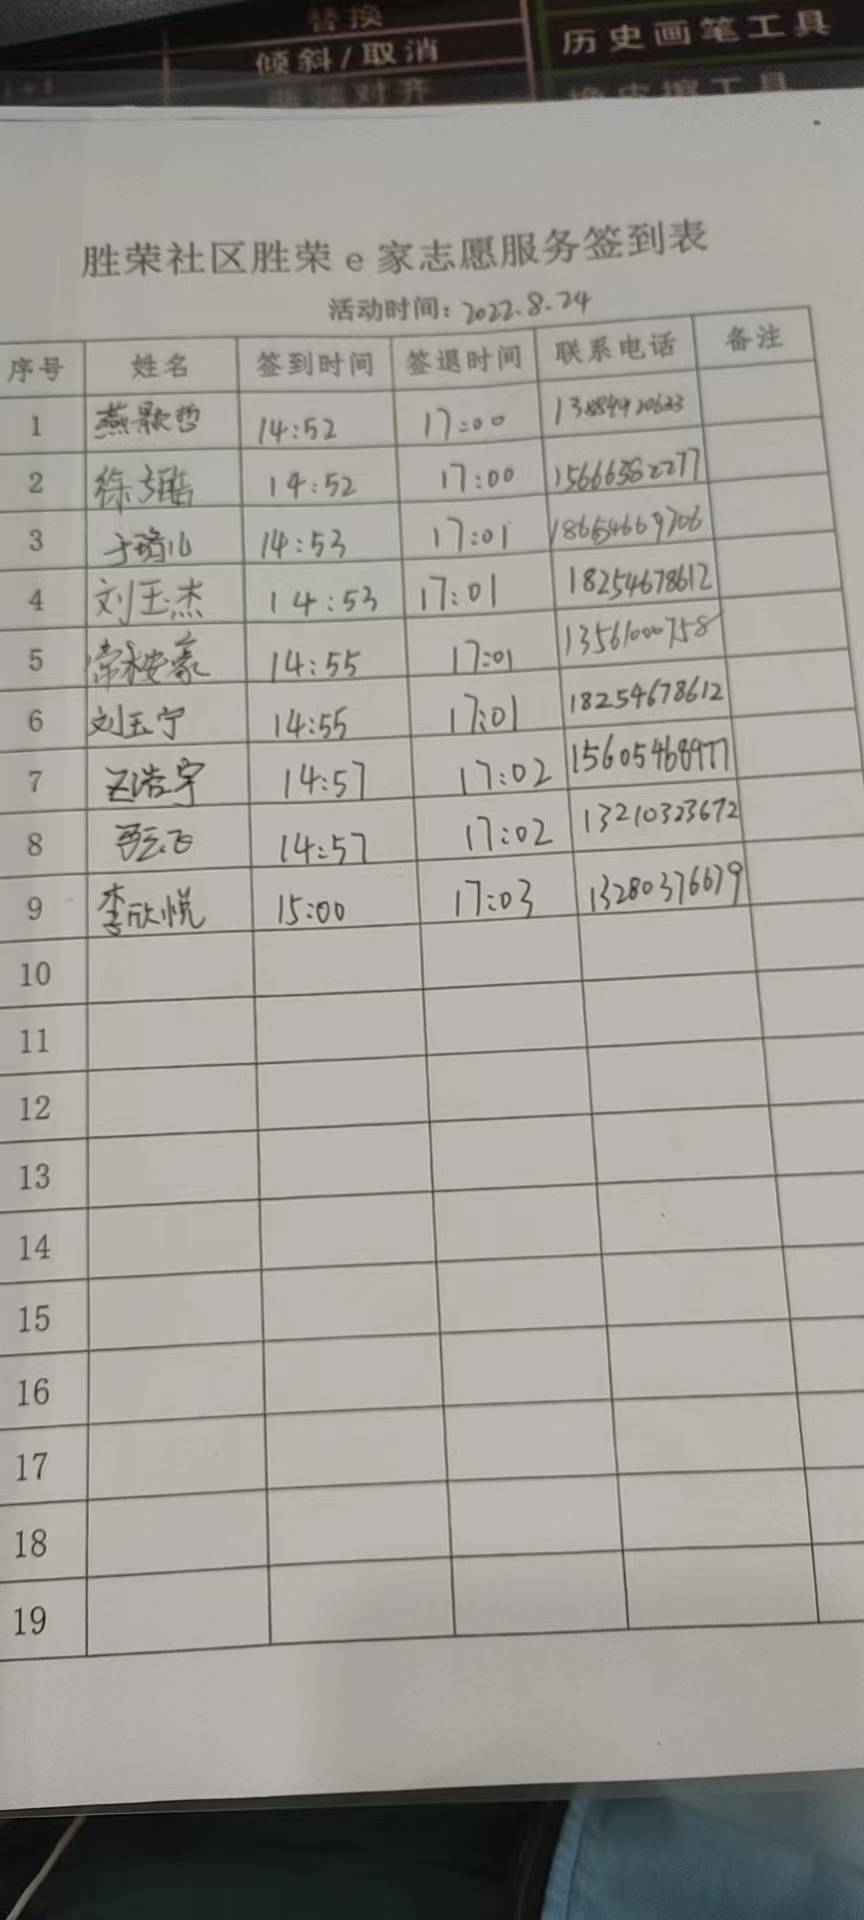 替换
倾斜/取消 历史画笔工具
胜荣社区胜荣e家志愿服务签到表
活动时间：2022.8.24
序号 姓名 签到时间 签退时间 联系电话 备注
1 14:52 17:00
2 14:52 17:00 15666382277
3 14:53 17:01 18654669706
4 刘玉杰 14:53 17:01 18254678612
5 14:55 17:01 13561000758
6 刘玉宁 14:55 17:01 18254678612
7 浩宇 14:57 17:02 15605468977
8 14:57 17:02 13210323672
9 李欣悦 15:00 17:03 13280376679
10
11
12
13
14
15
16
17
18
19